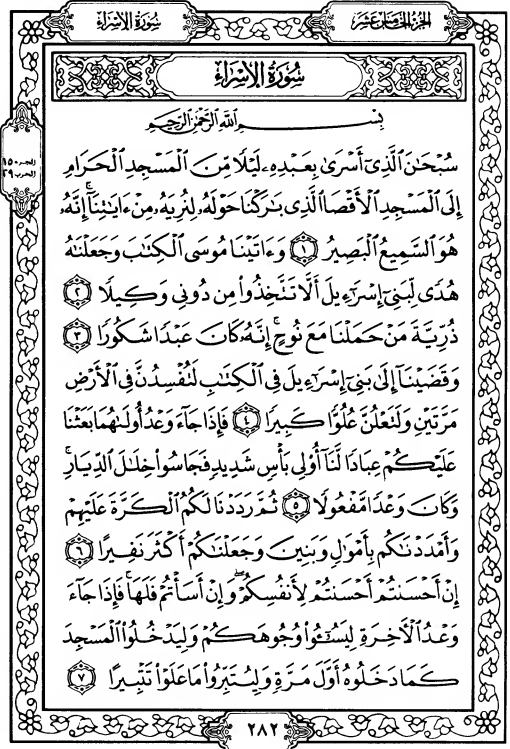 سُورَةُ الإِسْرَاءِ
الجُزْءُ الخَامِسَ عَشَرَ
سُورَةُ الإِسْرَاءِ
الجزء ١٥
الحزب ٢٩
بِسْمِ اللَّهِ الرَّحْمَٰنِ الرَّحِيمِ
سُبْحَٰنَ الَّذِىٓ أَسْرَىٰ بِعَبْدِهِۦ لَيْلًا مِّنَ الْمَسْجِدِ الْحَرَامِ
إِلَى الْمَسْجِدِ الْأَقْصَا الَّذِى بَٰرَكْنَا حَوْلَهُۥ لِنُرِيَهُۥ مِنْ ءَايَٰتِنَآ ۚ إِنَّهُۥ
هُوَ السَّمِيعُ الْبَصِيرُ ١ وَءَاتَيْنَا مُوسَى الْكِتَٰبَ وَجَعَلْنَٰهُ
هُدًى لِّبَنِىٓ إِسْرَٰٓءِيلَ أَلَّا تَتَّخِذُوا۟ مِن دُونِى وَكِيلًا ٢
ذُرِّيَّةَ مَنْ حَمَلْنَا مَعَ نُوحٍ ۚ إِنَّهُۥ كَانَ عَبْدًا شَكُورًا ٣
وَقَضَيْنَآ إِلَىٰ بَنِىٓ إِسْرَٰٓءِيلَ فِى الْكِتَٰبِ لَتُفْسِدُنَّ فِى الْأَرْضِ
مَرَّتَيْنِ وَلَتَعْلُنَّ عُلُوًّا كَبِيرًا ٤ فَإِذَا جَآءَ وَعْدُ أُولَىٰهُمَا بَعَثْنَا
عَلَيْكُمْ عِبَادًا لَّنَآ أُو۟لِى بَأْسٍ شَدِيدٍ فَجَاسُوا۟ خِلَٰلَ الدِّيَارِ ۚ
وَكَانَ وَعْدًا مَّفْعُولًا ٥ ثُمَّ رَدَدْنَا لَكُمُ الْكَرَّةَ عَلَيْهِمْ
وَأَمْدَدْنَٰكُم بِأَمْوَٰلٍ وَبَنِينَ وَجَعَلْنَٰكُمْ أَكْثَرَ نَفِيرًا ٦
إِنْ أَحْسَنتُمْ أَحْسَنتُمْ لِأَنفُسِكُمْ ۖ وَإِنْ أَسَأْتُمْ فَلَهَا ۚ فَإِذَا جَآءَ
وَعْدُ الْءَاخِرَةِ لِيَسُۥٓـُٔوا۟ وُجُوهَكُمْ وَلِيَدْخُلُوا۟ الْمَسْجِدَ
كَمَا دَخَلُوهُ أَوَّلَ مَرَّةٍ وَلِيُتَبِّرُوا۟ مَا عَلَوْا۟ تَتْبِيرًا ٧
٢٨٢